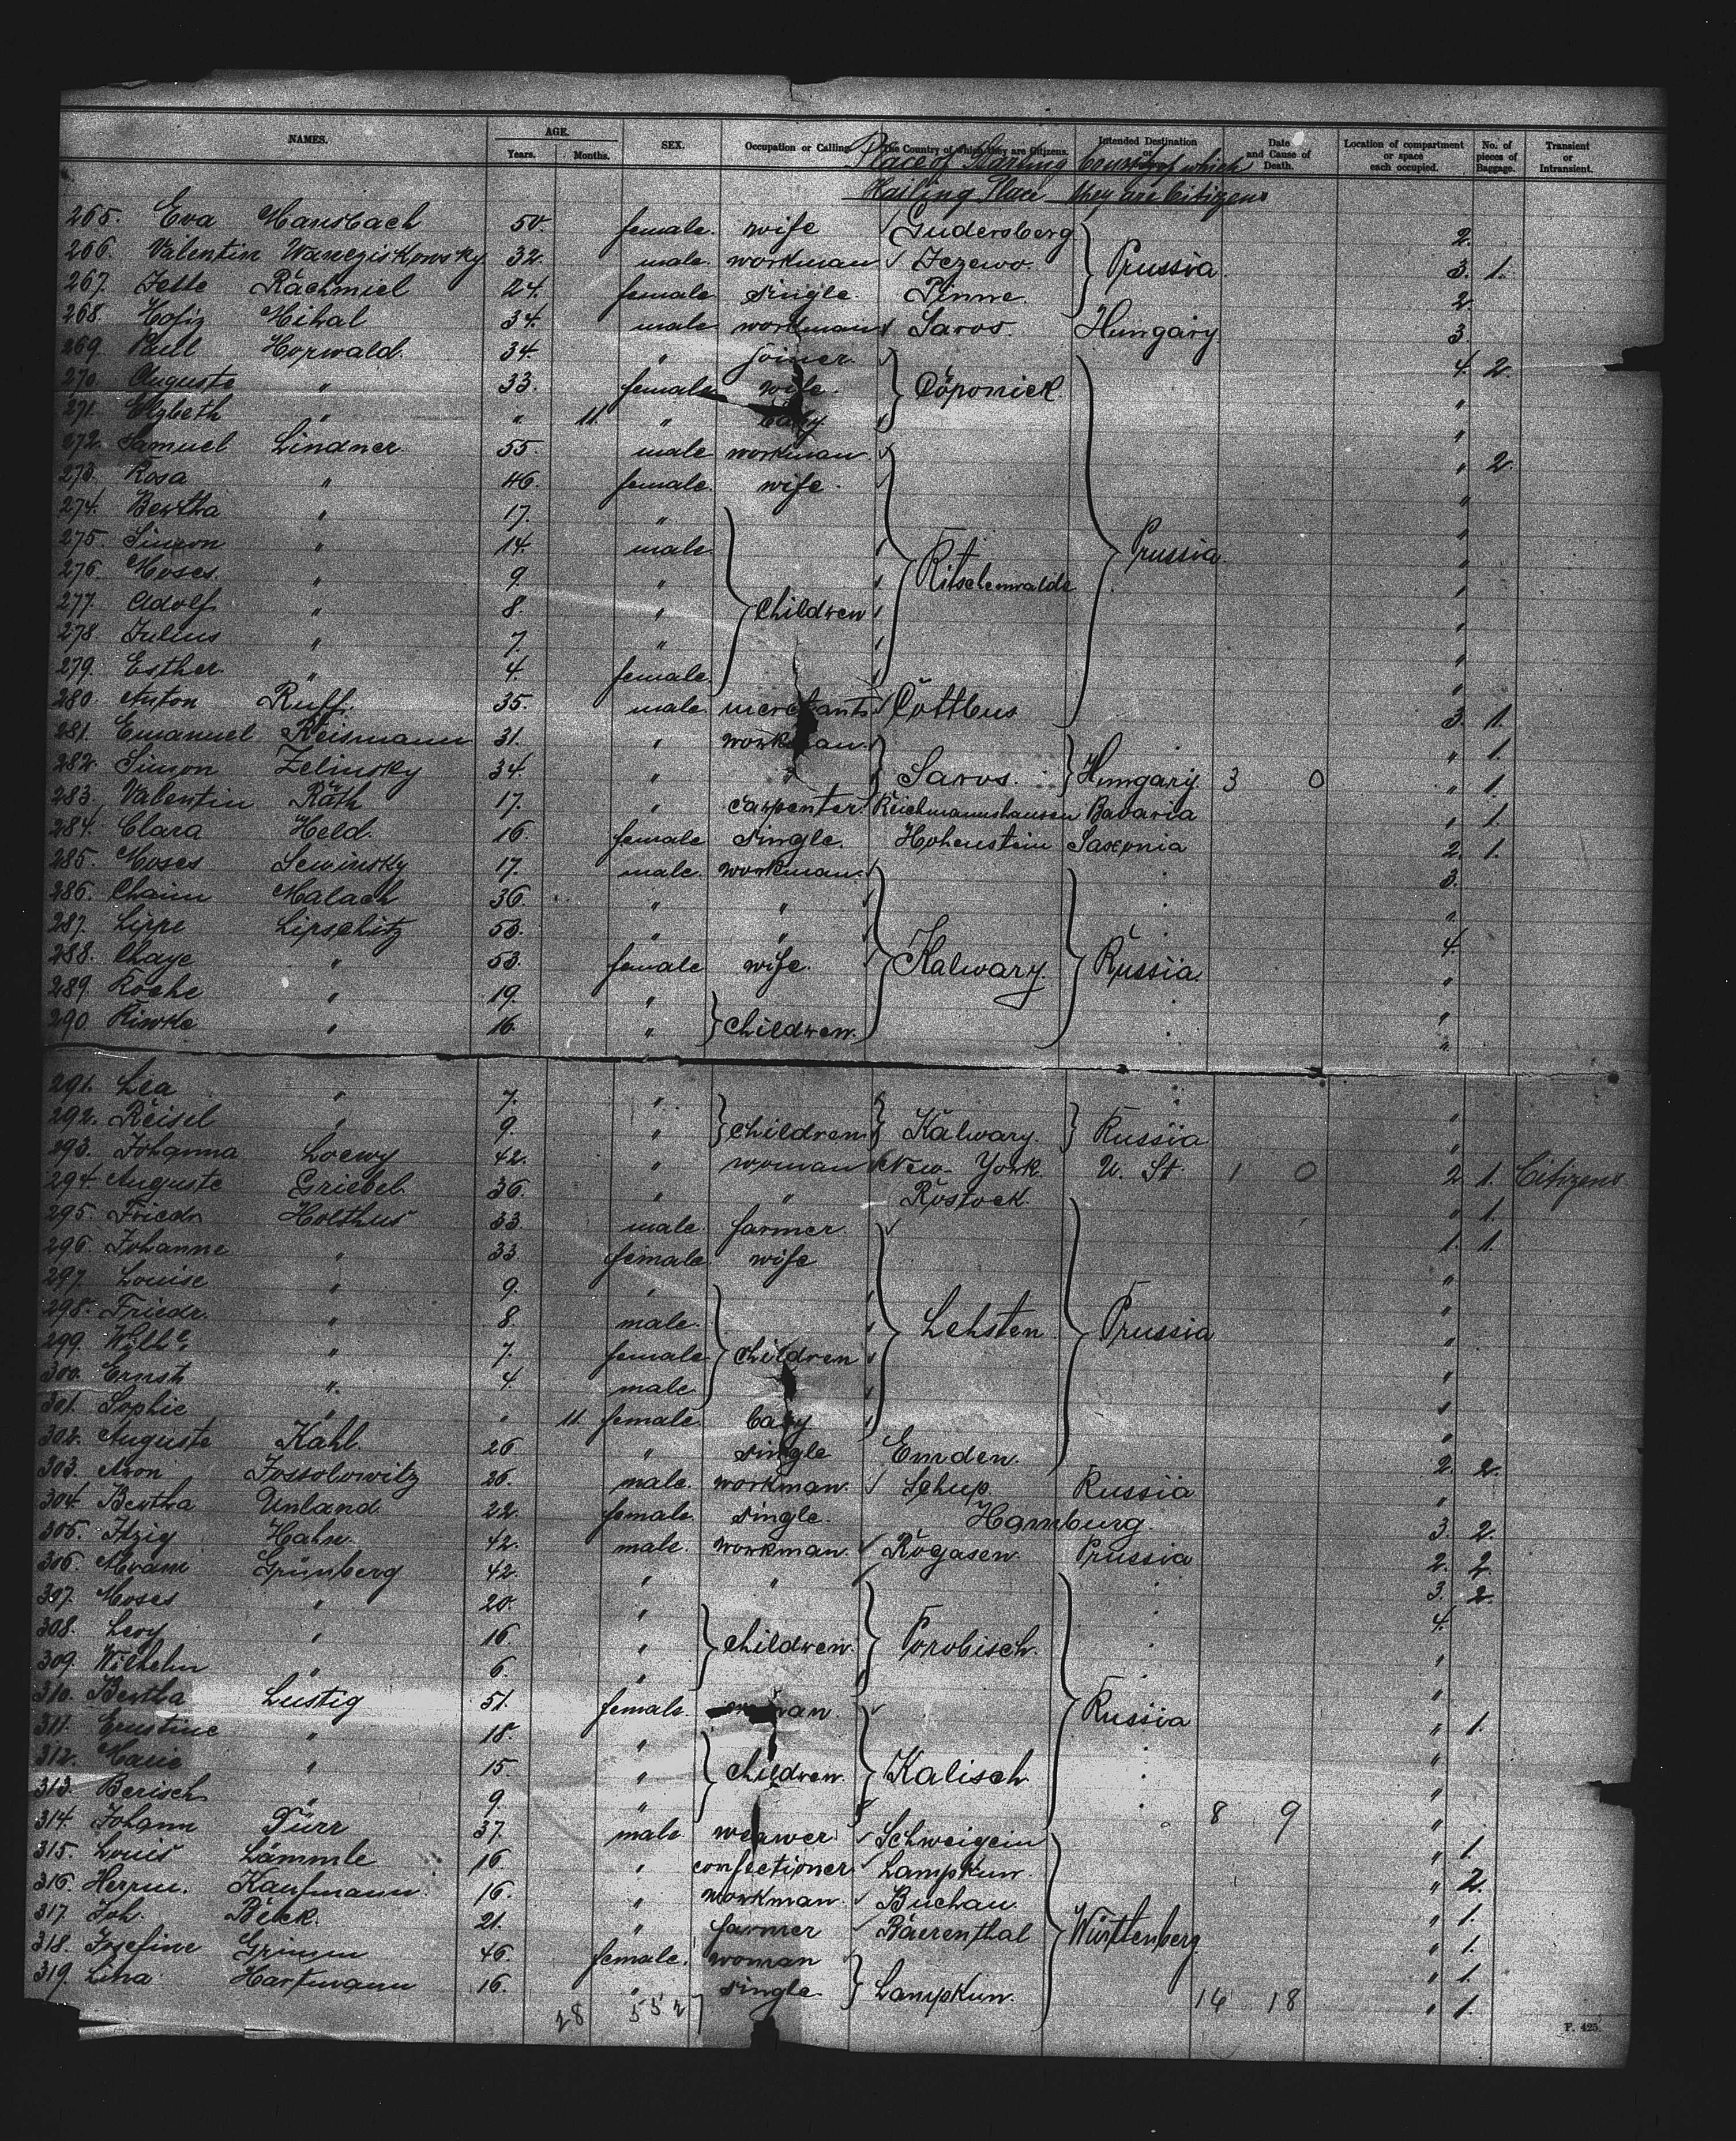 NAMES. AGE. Years. Months. SEX. Occupation or Calling. The Country of which they are Citizens. Intended Destination or Date and Cause of Death. Location of compartment or space each occupied. No. of pieces of Baggage. Transient or Intransient.
Place of Starting Country of which
Hailing Place they are Citizens
265. Eva Hansbach 50. female. wife Gudersberg 2.
266. Valentin 32. male. workman Jezewo. Prussia. 3. 1.
267. Jette Rachmiel 24. female single. Pinne. 2.
268. Hihal 34. male workman Saros. Hungary. 3.
269. Paul Horwald. 34. " joiner. 4. 2.
270. Auguste " 33. female wife. Cöponick. "
271. Elzbeth " " 11. " baby "
272. Samuel Lindner. 55. male workman. " 2.
273. Rosa " 46. female. wife. "
274. Bertha " 17. " "
275. Simon " 14. male. Prussia. "
276. Moses. " 9. " Ritschenwalde "
277. Adolf " 8. " Children "
278. Julius " 7. " "
279. Esther. " 4. female. "
280. Anton Ruff. 35. male. merchants Cottbus 3. 1.
281. Emanuel Reismann 31. " workman. " 1.
282. Simon Zelinsky 34. " " Saros. Hungary. 3 0 " 1.
283. Valentin Räth 17. " carpenter. Reichmannshausen Bavaria " 1.
284. Clara Held. 16. female single. Hohenstein Saxonia 2. 1.
285. Moses Lewinsky 17. male. workman. 3.
286. Chaim Malach 36. " " "
287. Lippe Lipschitz 53. " " 4.
288. Chaye " 53. female wife. Kalwary. Russia. "
289. Roche " 19. " "
290 Riwke " 16. " Children. "
291. Lea " 7. " "
292. Reisel " 9. " Children Kalwary. Russia "
293. Johanna Loewy 42. " woman New-York. U. St. 1 0 2. 1. Citizens
294. Auguste Griebel. 36. " " Rostock. " 1.
295. Friedr. Holthus 33. male. farmer. 1. 1.
296. Johanne " 33. female. wife "
297. Louise " 9. " "
298. Friedr. " 8. male. Lehsten. Prussia "
299. Wilhe. " 7. female. Children "
300. Ernst " 4. male. "
301. Sophie " " 11. female. baby "
302. Auguste Kahl. 26 " single Emden. 2. 2.
303. Aron Jossolowitz 26. male. workman. Schup. Russia "
304. Bertha Unland. 22. female. single. Hamburg. 3. 2.
305. Itzig Hahn. 42. male. workman. Rogasen. Prussia 2. 2.
306. Abram Grünberg 42. " " 3. 2.
307. Moses " 20. " 4.
308. Levy " 16. " Children. Porobisch. "
309. Wilhelm " 6. " "
310. Bertha Lustig 51. female. woman. Russia " 1.
311. Ernstine " 18. " "
312. Marie " 15. " Children. Kalisch "
313. Berisch " 9. " 8 9 "
314. Johann Dürr 37. male weawer Schweigein " 1.
315. Louis Lämmle 16. " confectioner. Lampkun. " 2.
316. Herm. Kaufmann. 16. " workman. Buchau. " 1.
317. Joh. Beck. 21. " farmer Bäerenthal Würtenberg. " 1.
318. Josefine Grimm 46. female. woman " 1.
319. Lina Hartmann 16. " single. Lampkun. 14 18 " 1.
28 552
F. 425.